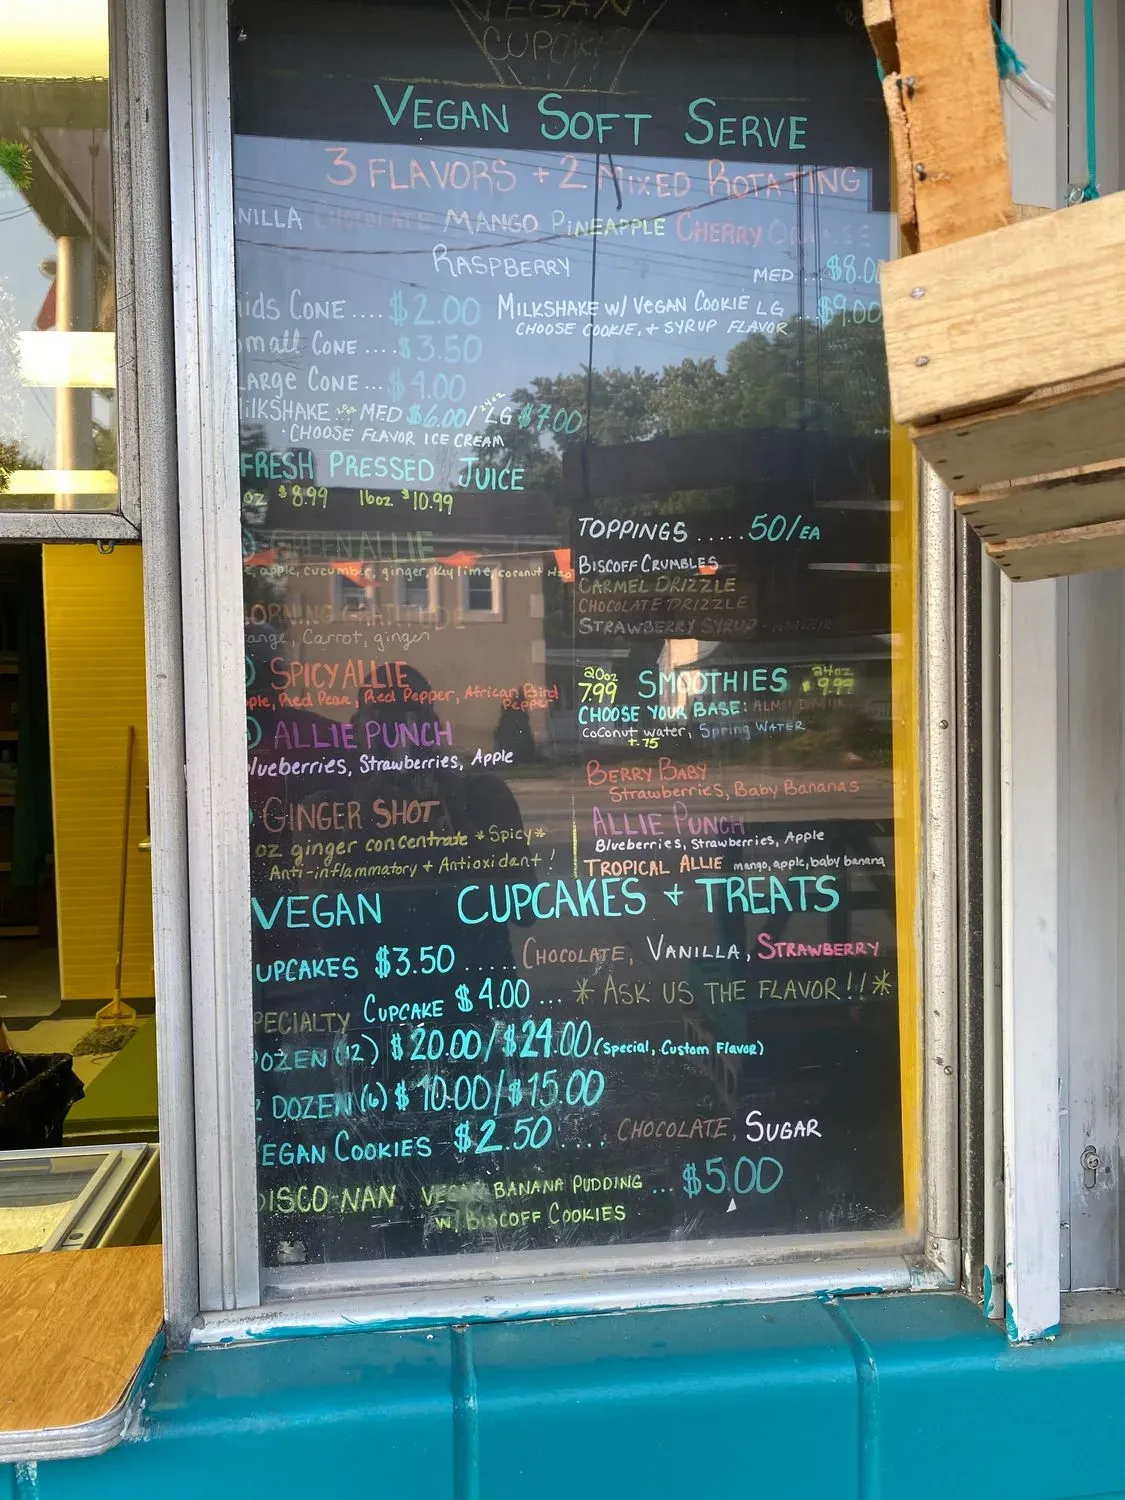 VEGAN
CUPCAKES
VEGAN SOFT SERVE
3 FLAVORS + 2 MIXED ROTATING
NILLA CHOCOLATE MANGO PINEAPPLE CHERRY ORANGE
RASPBERRY
MED ... $8.00
ids CONE .... $2.00
MILKSHAKE W/ VEGAN COOKIE LG ... $9.00
CHOOSE COOKIE, + SYRUP FLAVOR
mall CONE .... $3.50
ARGE CONE ... $4.00
ILKSHAKE ... 20oz MED $6.00/ 24oz LG $7.00
• CHOOSE FLAVOR ICE CREAM
FRESH PRESSED JUICE
oz $8.99 16oz $10.99
GREEN ALLIE
apple, cucumber, ginger, key lime, coconut H2O
ORNING GRATITUDE
ange, Carrot, ginger
SPICY ALLIE
ple, Red Pear, Red Pepper, African Bird
Pepper
ALLIE PUNCH
lueberries, Strawberries, Apple
GINGER SHOT
oz ginger concentrate *Spicy*
Anti-inflammatory + Antioxidant !
TOPPINGS ..... 50/EA
BISCOFF CRUMBLES
CARMEL DRIZZLE
CHOCOLATE DRIZZLE
STRAWBERRY SYRUP
20oz 7.99 SMOOTHIES 24oz $9.99
CHOOSE YOUR BASE: ALMOND MILK
COCONUT water, SPRING WATER
+.75
BERRY BABY
Strawberries, Baby Bananas
ALLIE PUNCH
Blueberries, Strawberries, Apple
TROPICAL ALLIE mango, apple, baby banana
VEGAN CUPCAKES + TREATS
UPCAKES $3.50 ..... CHOCOLATE, VANILLA, STRAWBERRY
PECIALTY CUPCAKE $4.00 ... * ASK US THE FLAVOR!! *
OZEN (12) $20.00/$24.00 (Special, Custom Flavor)
2 DOZEN (6) $10.00/$15.00
EGAN COOKIES $2.50 .... CHOCOLATE, SUGAR
ISCO NAN VEGAN BANANA PUDDING ... $5.00
W/ BISCOFF COOKIES